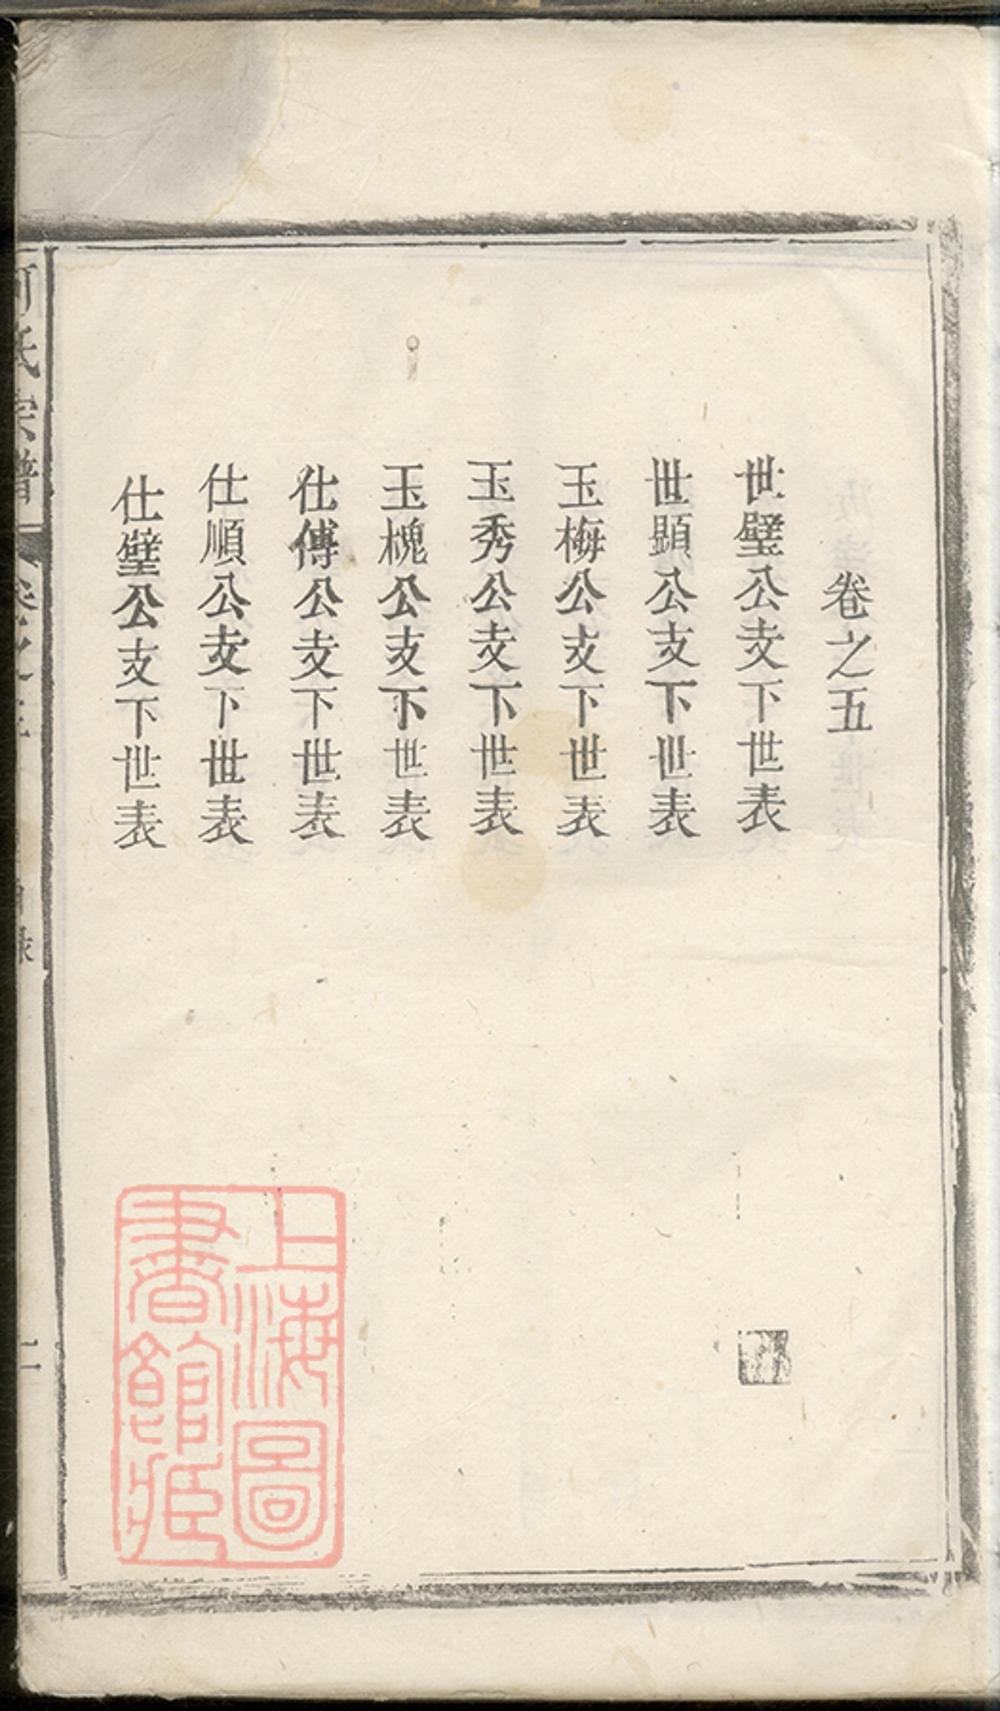 卷之五
世璧公支下世表
世顯公支下世表
玉梅公支下世表
玉秀公支下世表
玉槐公支下世表
仕傅公支下世表
仕順公支下世表
仕璧公支下世表
氏宗譜
卷之
目录
二
上海圖
書館藏